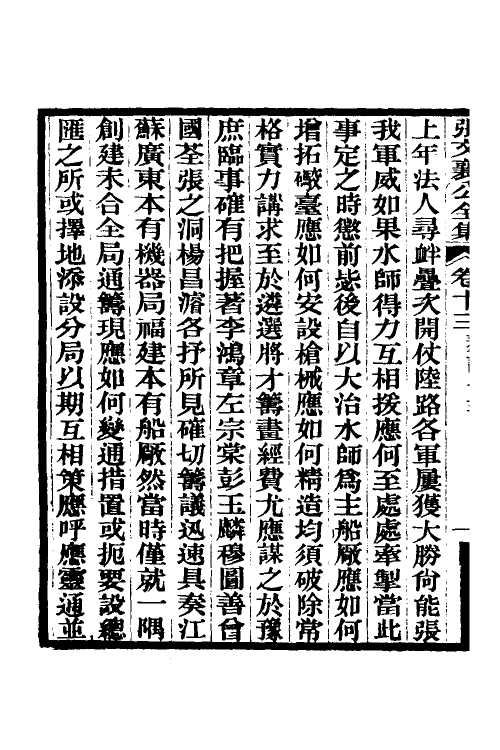 張文襄公全集　卷十三
上年法人尋衅疊次開仗陸路各軍屢獲大勝尙能張
我軍威如果水師得力互相援應何至處處牽掣當此
事定之時懲前毖後自以大治水師爲主船廠應如何
增拓礮臺應如何安設槍械應如何精造均須破除常
格實力講求至於遴選將才籌畫經費尤應謀之於豫
庶臨事確有把握著李鴻章左宗棠彭玉麟穆圖善曾
國荃張之洞楊昌濬各抒所見確切籌議迅速具奏江
蘇廣東本有機器局福建本有船廠然當時僅就一隅
創建未合全局通籌現應如何變通措置或扼要設總
匯之所或擇地添設分局以期互相策應呼應靈通並